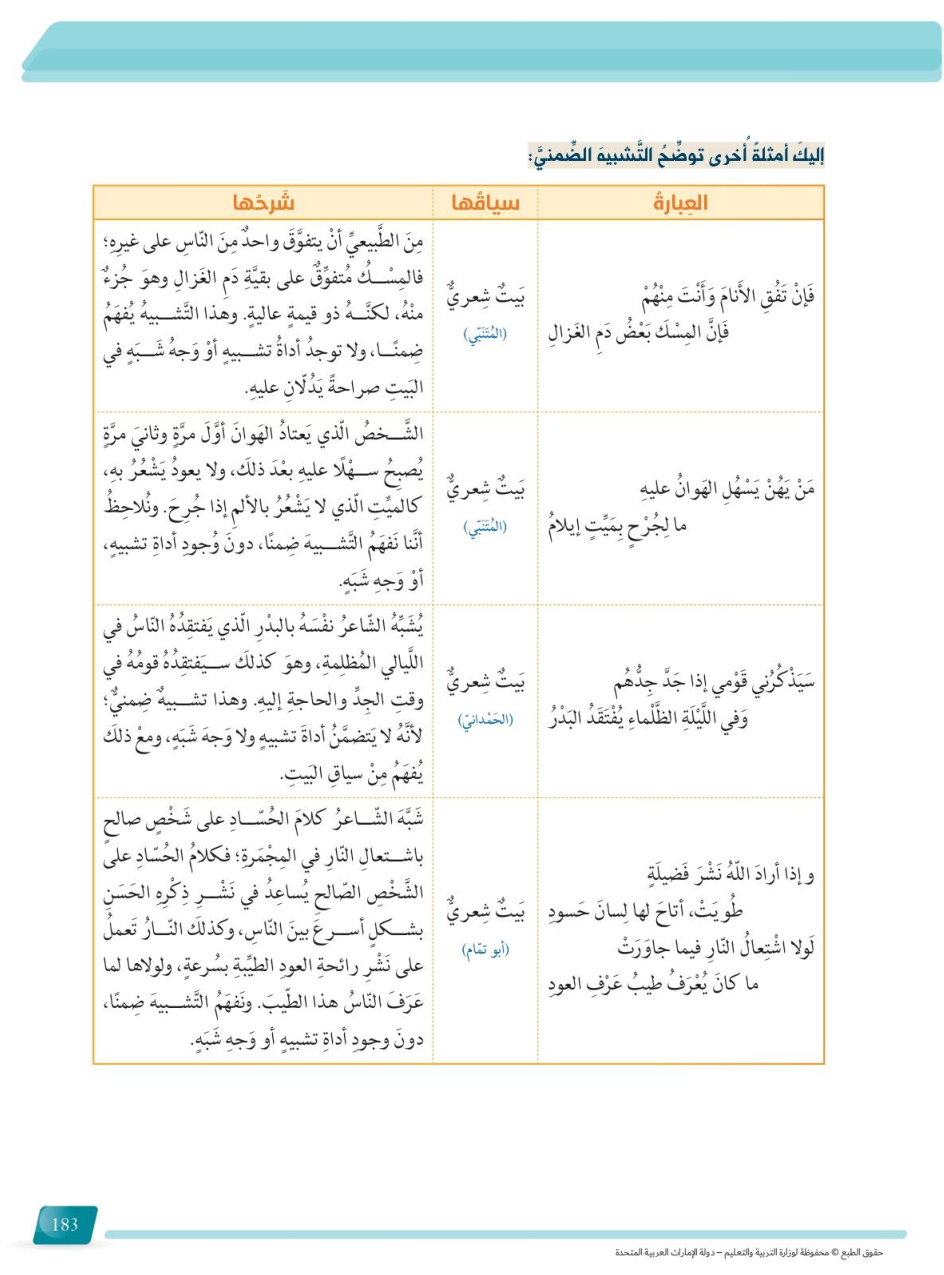 إليكَ أمثلةً أُخرى توضِّحُ التَّشبيهَ الضِّمنيَّ:
العِبارةُ
سياقُها
شَرحُها
فَإنْ تَفُقِ الأَنامَ وَأَنْتَ مِنْهُمْ
فَإنَّ المِسْكَ بَعْضُ دَمِ الغَزالِ
بَيتٌ شِعريٌّ
(المُتَنَبّي)
مِنَ الطَّبيعيِّ أنْ يتفوَّقَ واحدٌ مِنَ النّاسِ على غيرِهِ؛
فالمِسْكُ مُتفوِّقٌ على بقيَّةِ دَمِ الغَزالِ وهوَ جُزءٌ
منْهُ، لكنَّهُ ذو قيمةٍ عاليةٍ. وهذا التَّشبيهُ يُفهَمُ
ضِمنًا، ولا توجدُ أداةُ تشبيهٍ أوْ وَجهُ شَبَهٍ في
البَيتِ صراحةً يَدُلّانِ عليهِ.
مَنْ يَهُنْ يَسْهُلِ الهَوانُ عليهِ
ما لِجُرْحٍ بِمَيِّتٍ إيلامُ
بَيتٌ شِعريٌّ
(المُتَنَبّي)
الشَّخصُ الّذي يَعتادُ الهَوانَ أوَّلَ مرَّةٍ وثانيَ مرَّةٍ
يُصبِحُ سهْلًا عليهِ بعْدَ ذلكَ، ولا يعودُ يَشْعُرُ بهِ،
كالميِّتِ الّذي لا يَشْعُرُ بالألمِ إذا جُرِحَ. ونُلاحِظُ
أنَّنا نَفهَمُ التَّشبيهَ ضِمنًا، دونَ وُجودِ أداةِ تشبيهٍ،
أوْ وَجهِ شَبَهٍ.
سَيَذْكُرُني قَوْمي إذا جَدَّ جِدُّهُم
وَفي اللَّيْلَةِ الظَّلْماءِ يُفْتَقَدُ البَدْرُ
بَيتٌ شِعريٌّ
(الحَمْدانيّ)
يُشَبِّهُ الشّاعرُ نفْسَهُ بالبدْرِ الّذي يَفتقِدُهُ النّاسُ في
اللَّيالي المُظلِمةِ، وهوَ كذلكَ سيَفتقِدُهُ قومُهُ في
وقتِ الجِدِّ والحاجةِ إليهِ. وهذا تشبيهٌ ضِمنيٌّ؛
لأنَّهُ لا يَتضمَّنُ أداةَ تشبيهٍ ولا وَجهَ شَبَهٍ، ومعْ ذلكَ
يُفهَمُ مِنْ سياقِ البَيتِ.
وإذا أرادَ اللّهُ نَشْرَ فَضيلَةٍ
طُوِيَتْ، أتاحَ لها لِسانَ حَسودِ
لَولا اشْتِعالُ النّارِ فيما جاوَرَتْ
ما كانَ يُعْرَفُ طيبُ عَرْفِ العودِ
بَيتٌ شِعريٌّ
(أبو تمّام)
شَبَّهَ الشّاعرُ كلامَ الحُسّادِ على شَخْصٍ صالحٍ
باشتعالِ النّارِ في المِجْمَرةِ؛ فكلامُ الحُسّادِ على
الشَّخْصِ الصّالحِ يُساعدُ في نَشْرِ ذِكْرِهِ الحَسَنِ
بشكلٍ أسرعَ بينَ النّاسِ، وكذلكَ النّارُ تَعملُ
على نَشْرِ رائحةِ العودِ الطيِّبةِ بسُرعةٍ، ولولاها لما
عَرَفَ النّاسُ هذا الطّيبَ. ونَفهَمُ التَّشبيهَ ضِمنًا،
دونَ وجودِ أداةِ تشبيهٍ أو وَجهِ شَبَهٍ.
183
حقوق الطبع © محفوظة لوزارة التربية والتعليم – دولة الإمارات العربية المتحدة